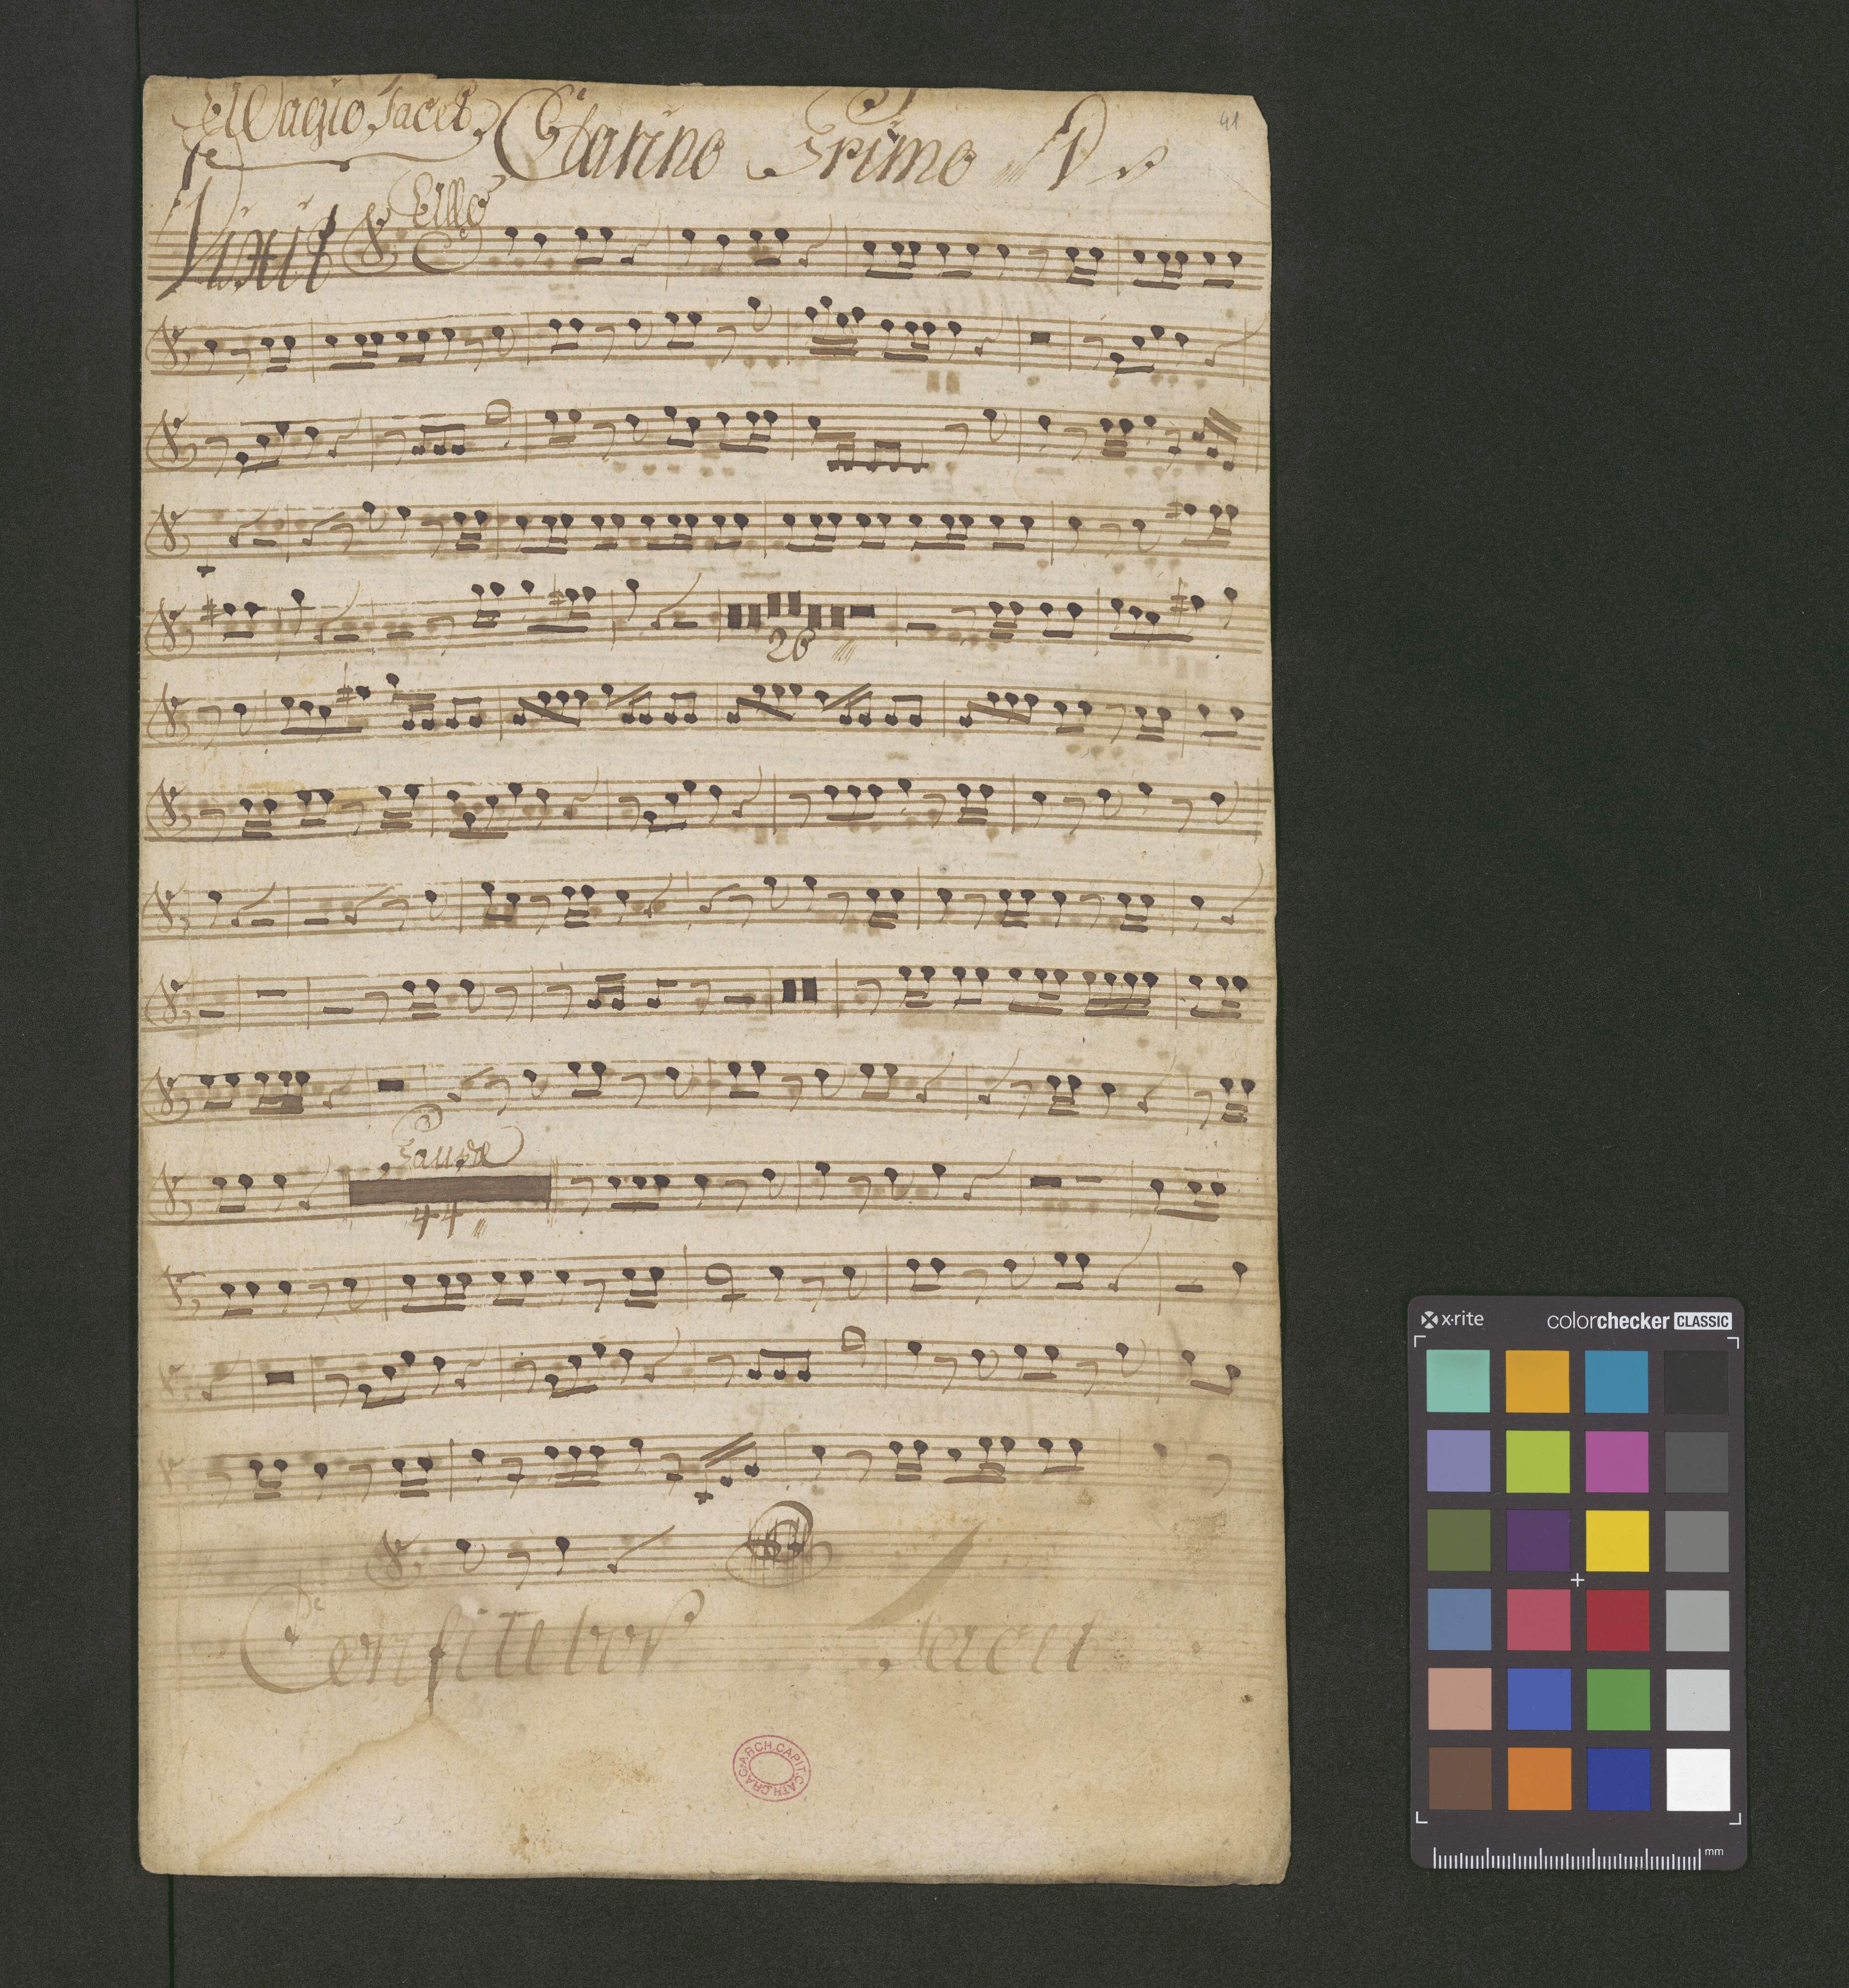 Adagio Tacet
Clarino Primo
41
Dixit
26
Pausa
44
Confitebor Tacet
ARCH.CAPIT.CATH.CRAC
x·rite colorchecker CLASSIC
mm